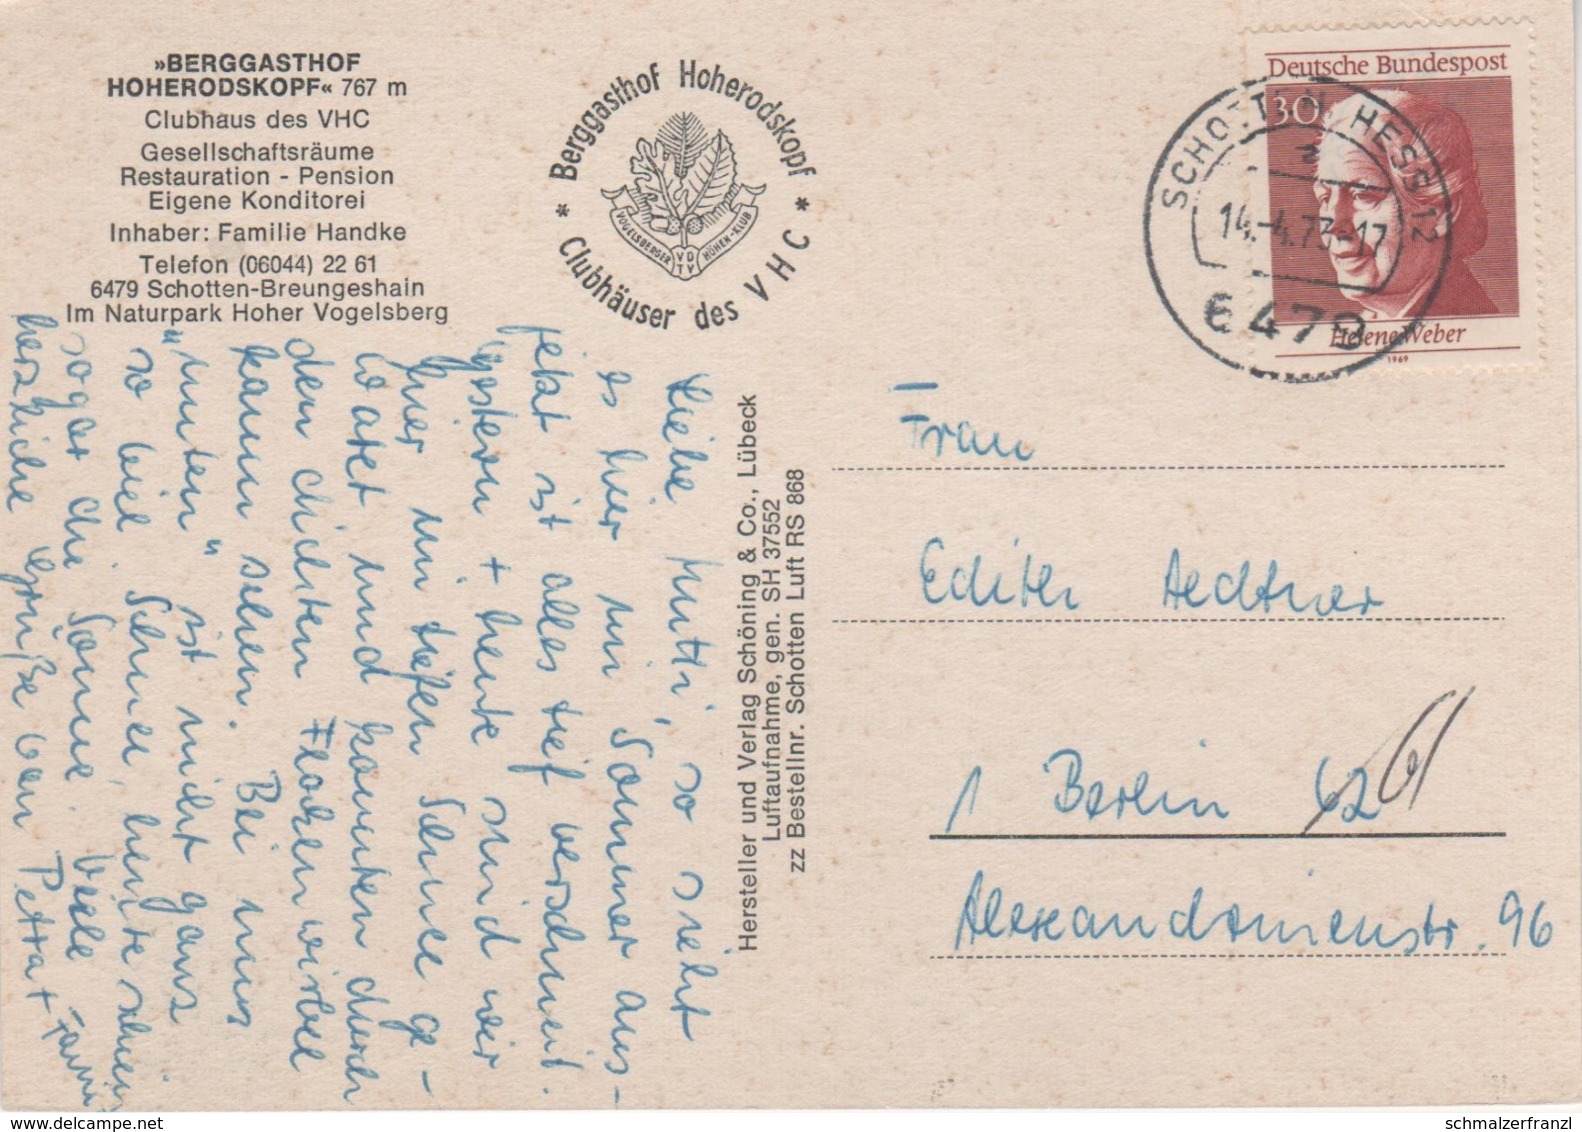 »BERGGASTHOF
HOHERODSKOPF« 767 m
Clubhaus des VHC
Gesellschaftsräume
Restauration - Pension
Eigene Konditorei
Inhaber: Familie Handke
Telefon (06044) 22 61
6479 Schotten-Breungeshain
Im Naturpark Hoher Vogelsberg
* Berggasthof Hoherodskopf *
Clubhäuser des VHC
VOGELSBERGER HÖHEN-KLUB
Deutsche Bundespost
30
Helene Weber
1969
SCHOTTEN, HESS 12
14.-4.73-17
6479
Liebe Mutti, so sieht
es hier im Sommer aus-
jetzt ist alles tief verschneit.
Gestern + heute sind wir
hier im tiefen Schnee ge-
watet und konnten durch
den dichten Flockenwirbel
kaum sehen. Bei uns
„unten" ist nicht ganz
so viel Schnee, heute schien
sogar die Sonne. Viele
herzliche Grüße von Petra + Fam
Hersteller und Verlag Schöning & Co., Lübeck
Luftaufnahme, gen. SH 37552
zz Bestellnr. Schotten Luft RS 868
Frau
Edith Aedtner
1 Berlin 62 61
Alexandrinenstr. 96
schmalzerfranzl